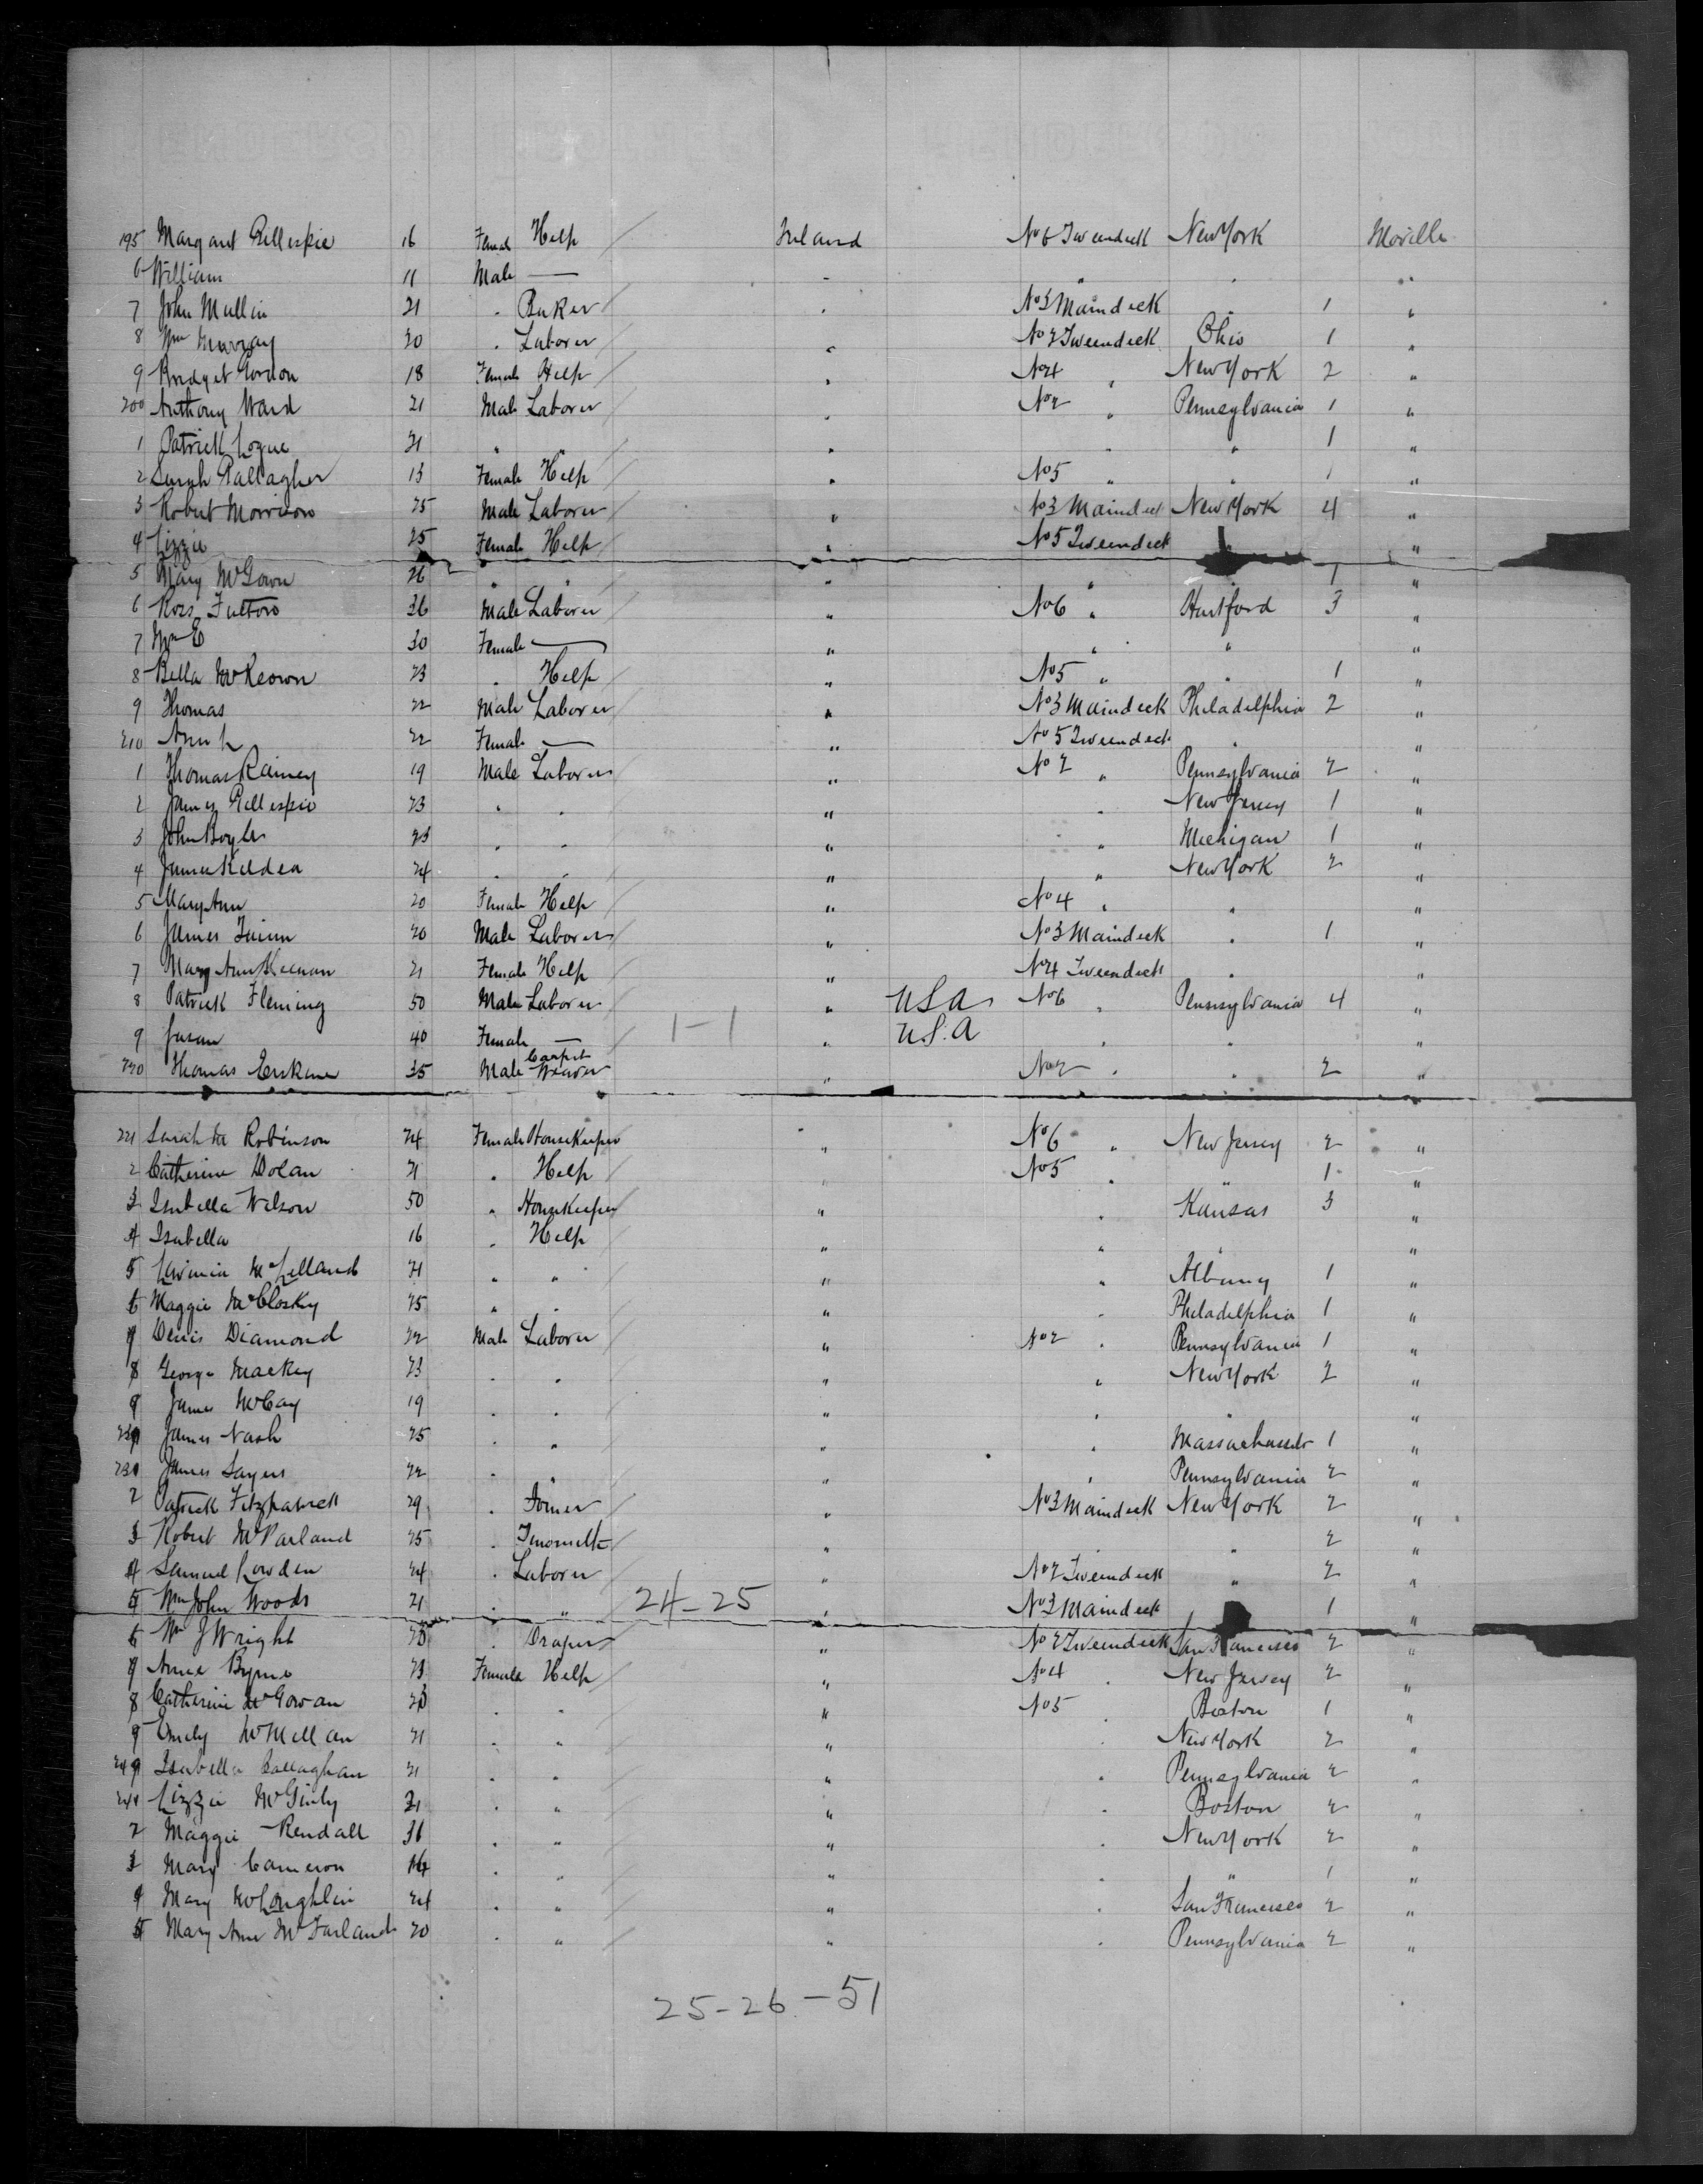 195 Margaret Gillespie 16 Female Help Ireland No 6 Tweendeck New York Moville
6 William 11 Male — " " " "
7 John Mullin 21 " Baker " No 3 Maindeck " 1 "
8 Wm Murray 20 " Laborer " No 2 Tweendeck Ohio 1 "
9 Bridget Gordon 18 Female Help " No 4 " New York 2 "
200 Anthony Ward 21 Male Laborer " No 2 " Pennsylvania 1 "
1 Patrick Logue 21 " " " " " 1 "
2 Sarah Gallagher Female Help " No 5 " " 1 "
3 Robert Morrison 25 Male Laborer " No 3 Maindeck New York 4 "
4 Lizzie 25 Female Help " No 5 Tweendeck "
5 Mary McGown 26 " " " " 1 "
6 Ross Fulton 36 Male Laborer " No 6 " Hartford 3 "
7 Mrs E 30 Female — " " " "
8 Bella McKeown 23 " Help " No 5 " " 1 "
9 Thomas 22 Male Laborer " No 3 Maindeck Philadelphia 2 "
210 Ann 22 Female — " No 5 Tweendeck " "
1 Thomas Rainey 19 Male Laborer " No 2 " Pennsylvania 2 "
2 James Gillespie 23 " " " " New Jersey 1 "
3 John Boyle 23 " " " " Michigan 1 "
4 James Kildea 24 " " " " New York 2 "
5 Mary Ann 20 Female Help " No 4 " " "
6 James 20 Male Laborer " No 3 Maindeck " 1 "
7 Mary Ann Keenan 21 Female Help " No 4 Tweendeck " "
8 Patrick Fleming 50 Male Laborer " USA No 6 " Pennsylvania 4 "
9 Susan 40 Female — 1-1 " U.S.A " " "
220 Thomas Erskine 35 Male Carpet Weaver " No 2 " " 2 "
221 Sarah M Robinson 24 Female Housekeeper " No 6 " New Jersey 2 "
2 Catherine Dolan 21 " Help " No 5 " " 1 "
3 Isabella Wilson 50 " Housekeeper " " Kansas 3 "
4 Isabella 16 " Help " " " "
5 Lavinia McLelland 21 " " " " Albany 1 "
6 Maggie McCloskey 25 " " " " Philadelphia 1 "
7 Denis Diamond 22 Male Laborer " No 2 " Pennsylvania 1 "
8 George Mackey 23 " " " " New York 2 "
9 James McCay 19 " " " " " "
230 James Nash 25 " " " " Massachusetts 1 "
231 James Sayers 22 " " " " Pennsylvania 2 "
2 Patrick Fitzpatrick 29 " Joiner " No 3 Maindeck New York 2 "
3 Robert McParland 25 " Tinsmith " " 2 "
4 Samuel Lowden 24 " Laborer " No 2 Tweendeck " 2 "
5 Wm John Woods 21 " " 24-25 " No 3 Maindeck 1 "
6 Wm J Wright " Draper " No 2 Tweendeck San Francisco 2 "
7 Annie Byrne 23 Female Help " No 4 " New Jersey 2 "
8 Catherine McGowan " " " No 5 " Boston 1 "
9 Emily McMillan 21 " " " " New York 2 "
240 Isabella Callaghan 21 " " " " Pennsylvania 2 "
241 Lizzie McGinly 21 " " " " Boston 2 "
2 Maggie Kendall 36 " " " " New York 2 "
3 Mary Cameron " " " " " 1 "
4 Mary McLoughlin 24 " " " " San Francisco 2 "
5 Mary Ann McFarland 20 " " " " Pennsylvania 2 "
25-26-51